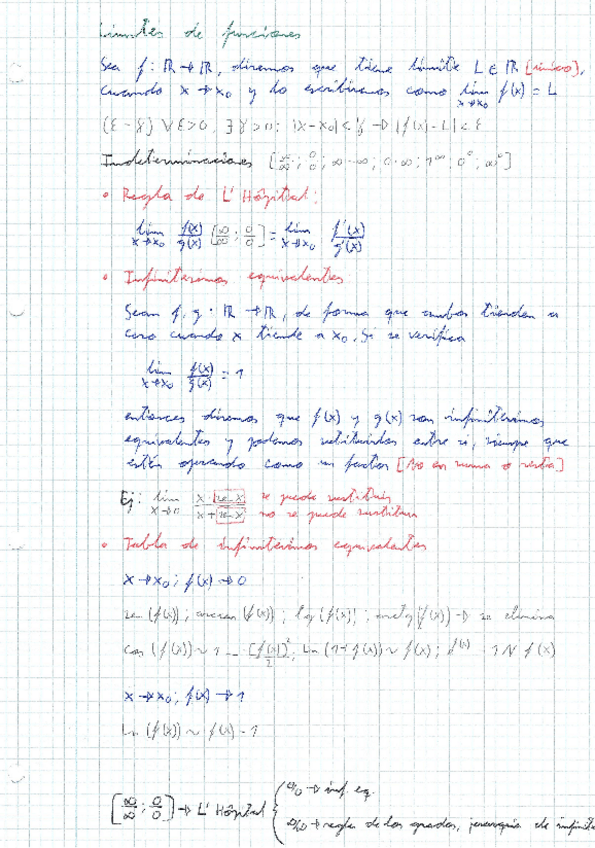 Límites de funciones
Sea f: ℝ → ℝ, diremos que tiene límite L ∈ ℝ (único),
cuando x → x₀ y lo escribiremos como lim x→x₀ f(x) = L
(ε - δ) ∀ε>0, ∃ δ>0: |x-x₀|<δ → |f(x)-L|<ε
Indeterminaciones [∞/∞; 0/0; ∞-∞; 0·∞; 1^∞; 0⁰; ∞⁰]
• Regla de L'Hôpital:
lim x→x₀ f(x)/g(x) [∞/∞; 0/0] = lim x→x₀ f'(x)/g'(x)
• Infinitésimos equivalentes
Sean f, g: ℝ → ℝ, de forma que ambas tienden a
cero cuando x tiende a x₀. Si se verifica
lim x→x₀ f(x)/g(x) = 1
entonces diremos que f(x) y g(x) son infinitésimos
equivalentes y podemos sustituirlos entre sí, siempre que
estén operando como un factor [No en suma o resta]
Ej: lim x→0 x·sen x / x+sen x se puede sustituir
no se puede sustituir
• Tabla de infinitésimos equivalentes
x → x₀; f(x) → 0
sen (f(x)); arcsen (f(x)); tg (f(x)); arctg (f(x)) → se elimina
cos (f(x)) ~ 1 - [f(x)]²/2; Ln (1+f(x)) ~ f(x); f(x) 1 ~ f(x)
x → x₀; f(x) → 1
Ln (f(x)) ~ f(x) - 1
[∞/∞; 0/0] → L'Hôpital { 0/0 → inf. eq.
∞/∞ → regla de los grados, jerarquía de infinit